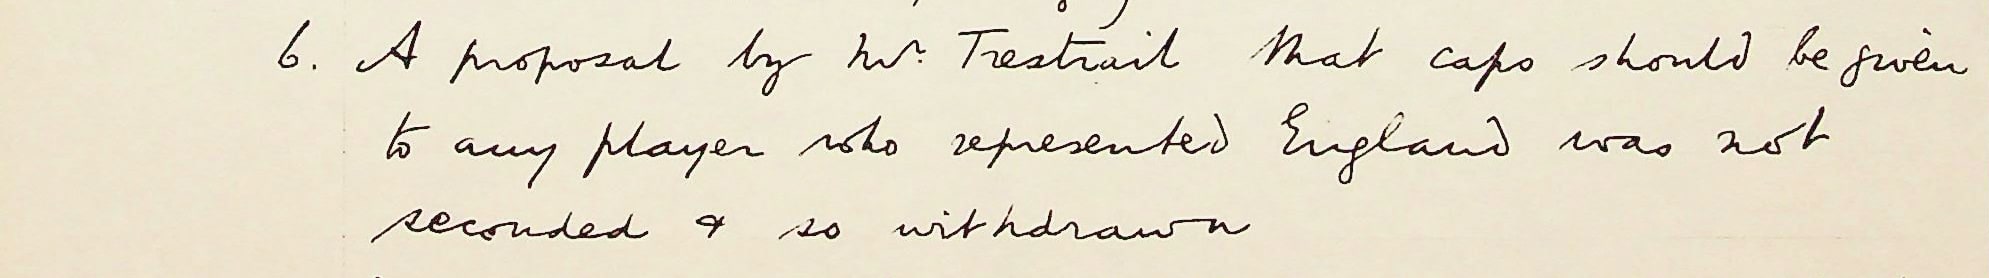 6. A proposal by Mr. Trestrail that caps should be given
to any player who represented England was not
seconded & so withdrawn